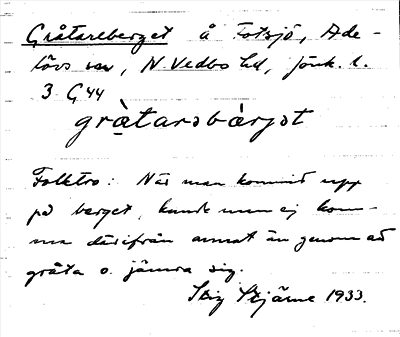 Gråtareberget å Fotsjö, Ade-
lövs sn, N. Vedbo hd, Jönk. l.
3 G 44
grà̤tarəbàrjət
Folktro: När man kommit upp
på berget, kunde man ej kom-
ma därifrån annat än genom att
gråta o. jämra sig.
Stig Stjärne 1933.